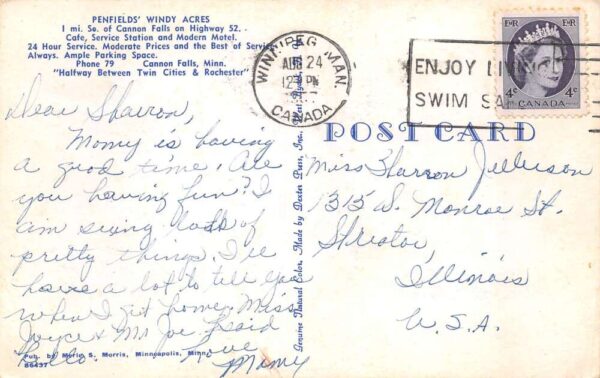 PENFIELDS' WINDY ACRES
1 mi. So. of Cannon Falls on Highway 52.
Cafe, Service Station and Modern Motel.
24 Hour Service. Moderate Prices and the Best of Service
Always. Ample Parking Space.
Phone 79 Cannon Falls, Minn.
"Halfway Between Twin Cities & Rochester"
Dear Sharron,
Momy is having
a good time. Are
you having fun? I
am seeing lots of
pretty things. I'll
have a lot to tell you
when I get home. Miss
Joyce & Mr Joe said
hello. Love
Momy
Pub. by Merle S. Morris, Minneapolis, Minn.
86437
Genuine Natural Color, Made by Dexter Press, Inc.
WINNIPEG MAN.
AUG 24
12 PM
CANADA
ENJOY LIVING
SWIM
E II R E II R
4c 4c
CANADA
POST CARD
Miss Sharron
1315 S. Monroe St.
Streator
Illinois
U.S.A.